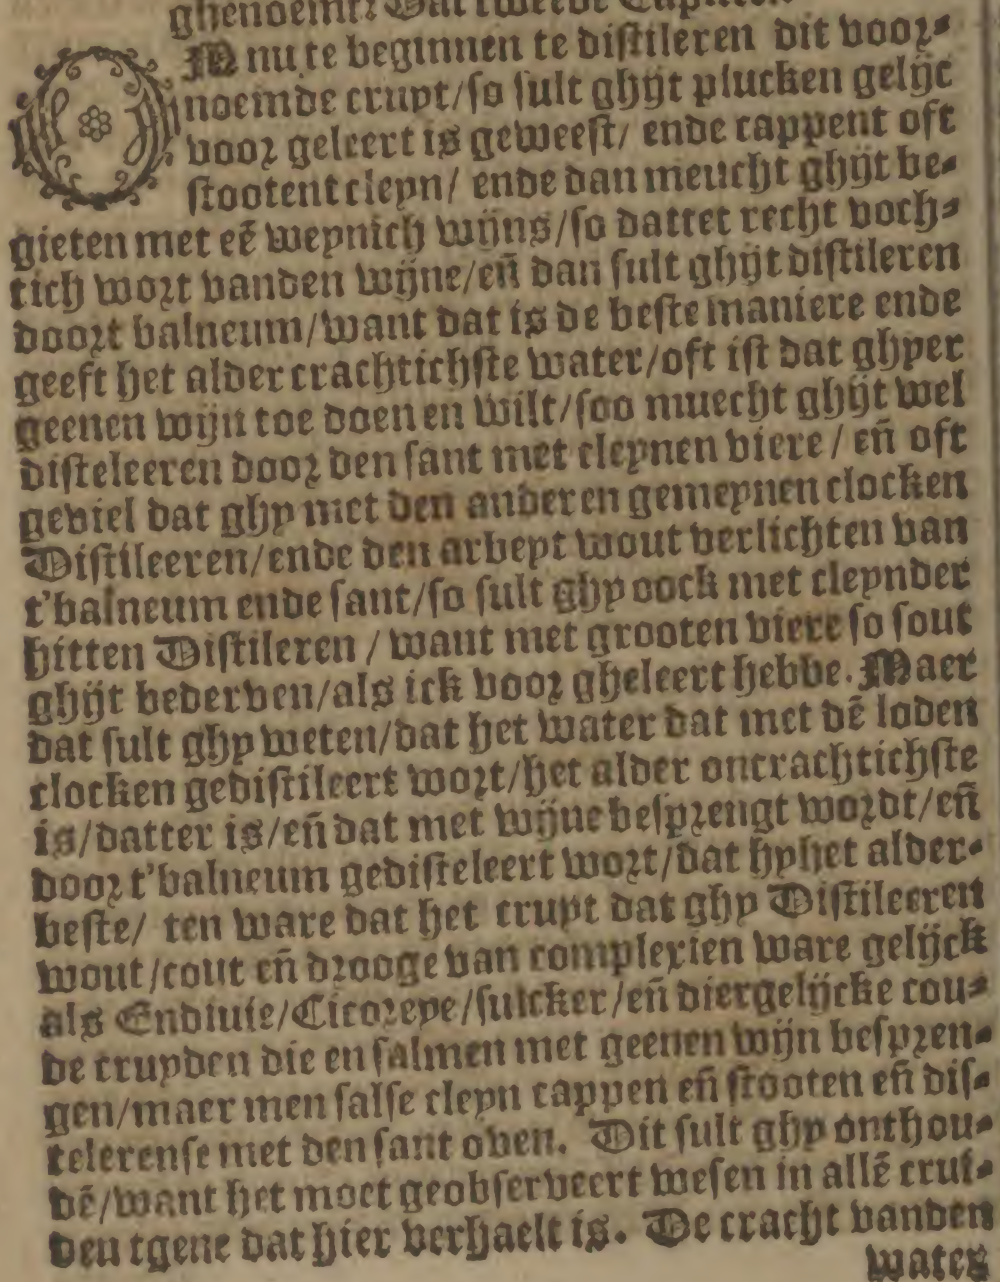 ghenoemt? Dat tweede Capittel.
OM nu te beginnen te distileren dit voor-
noemde cruyt/so sult ghijt plucken gelijc
voor geleert is geweest/ ende cappent oft
stootent cleyn/ ende dan meucht ghijt be-
gieten met eē weynich wijns/so dattet recht voch-
tich wort vanden wijne/eñ dan sult ghijt distileren
doort balneum/want dat is de beste maniere ende
geeft het alder crachtichste water/oft ist dat ghyer
geenen wijn toe doen en wilt/soo muecht ghijt wel
disteleeren door den sant met cleynen viere/ eñ oft
geviel dat ghy met den anderen gemeynen clocken
Distileeren/ende den arbeyt wout verlichten van
t'balneum ende sant/so sult ghy oock met cleynder
hitten Distileren/ want met grooten viere so sout
ghijt bederven/als ick voor gheleert hebbe. Maer
dat sult ghy weten/dat het water dat met dē loden
clocken gedistileert wort/het alder oncrachtichste
is/datter is/eñ dat met wijne besprengt wordt/eñ
door t'balneum gedisteleert wort/dat hyhet alder-
beste/ ten ware dat het cruyt dat ghy Distileeren
wout/cout eñ drooge van complexien ware gelijck
als Endiuie/Cicoreye/suicker/eñ diergelijcke cou-
de cruyden die en salmen met geenen wijn bespren-
gen/maer men salse cleyn cappen eñ stooten eñ dis-
telerense met den sant oven. Dit sult ghy onthou-
dē/want het moet geobserveert wesen in allē crui-
den tgene dat hier verhaelt is. De cracht vanden
water